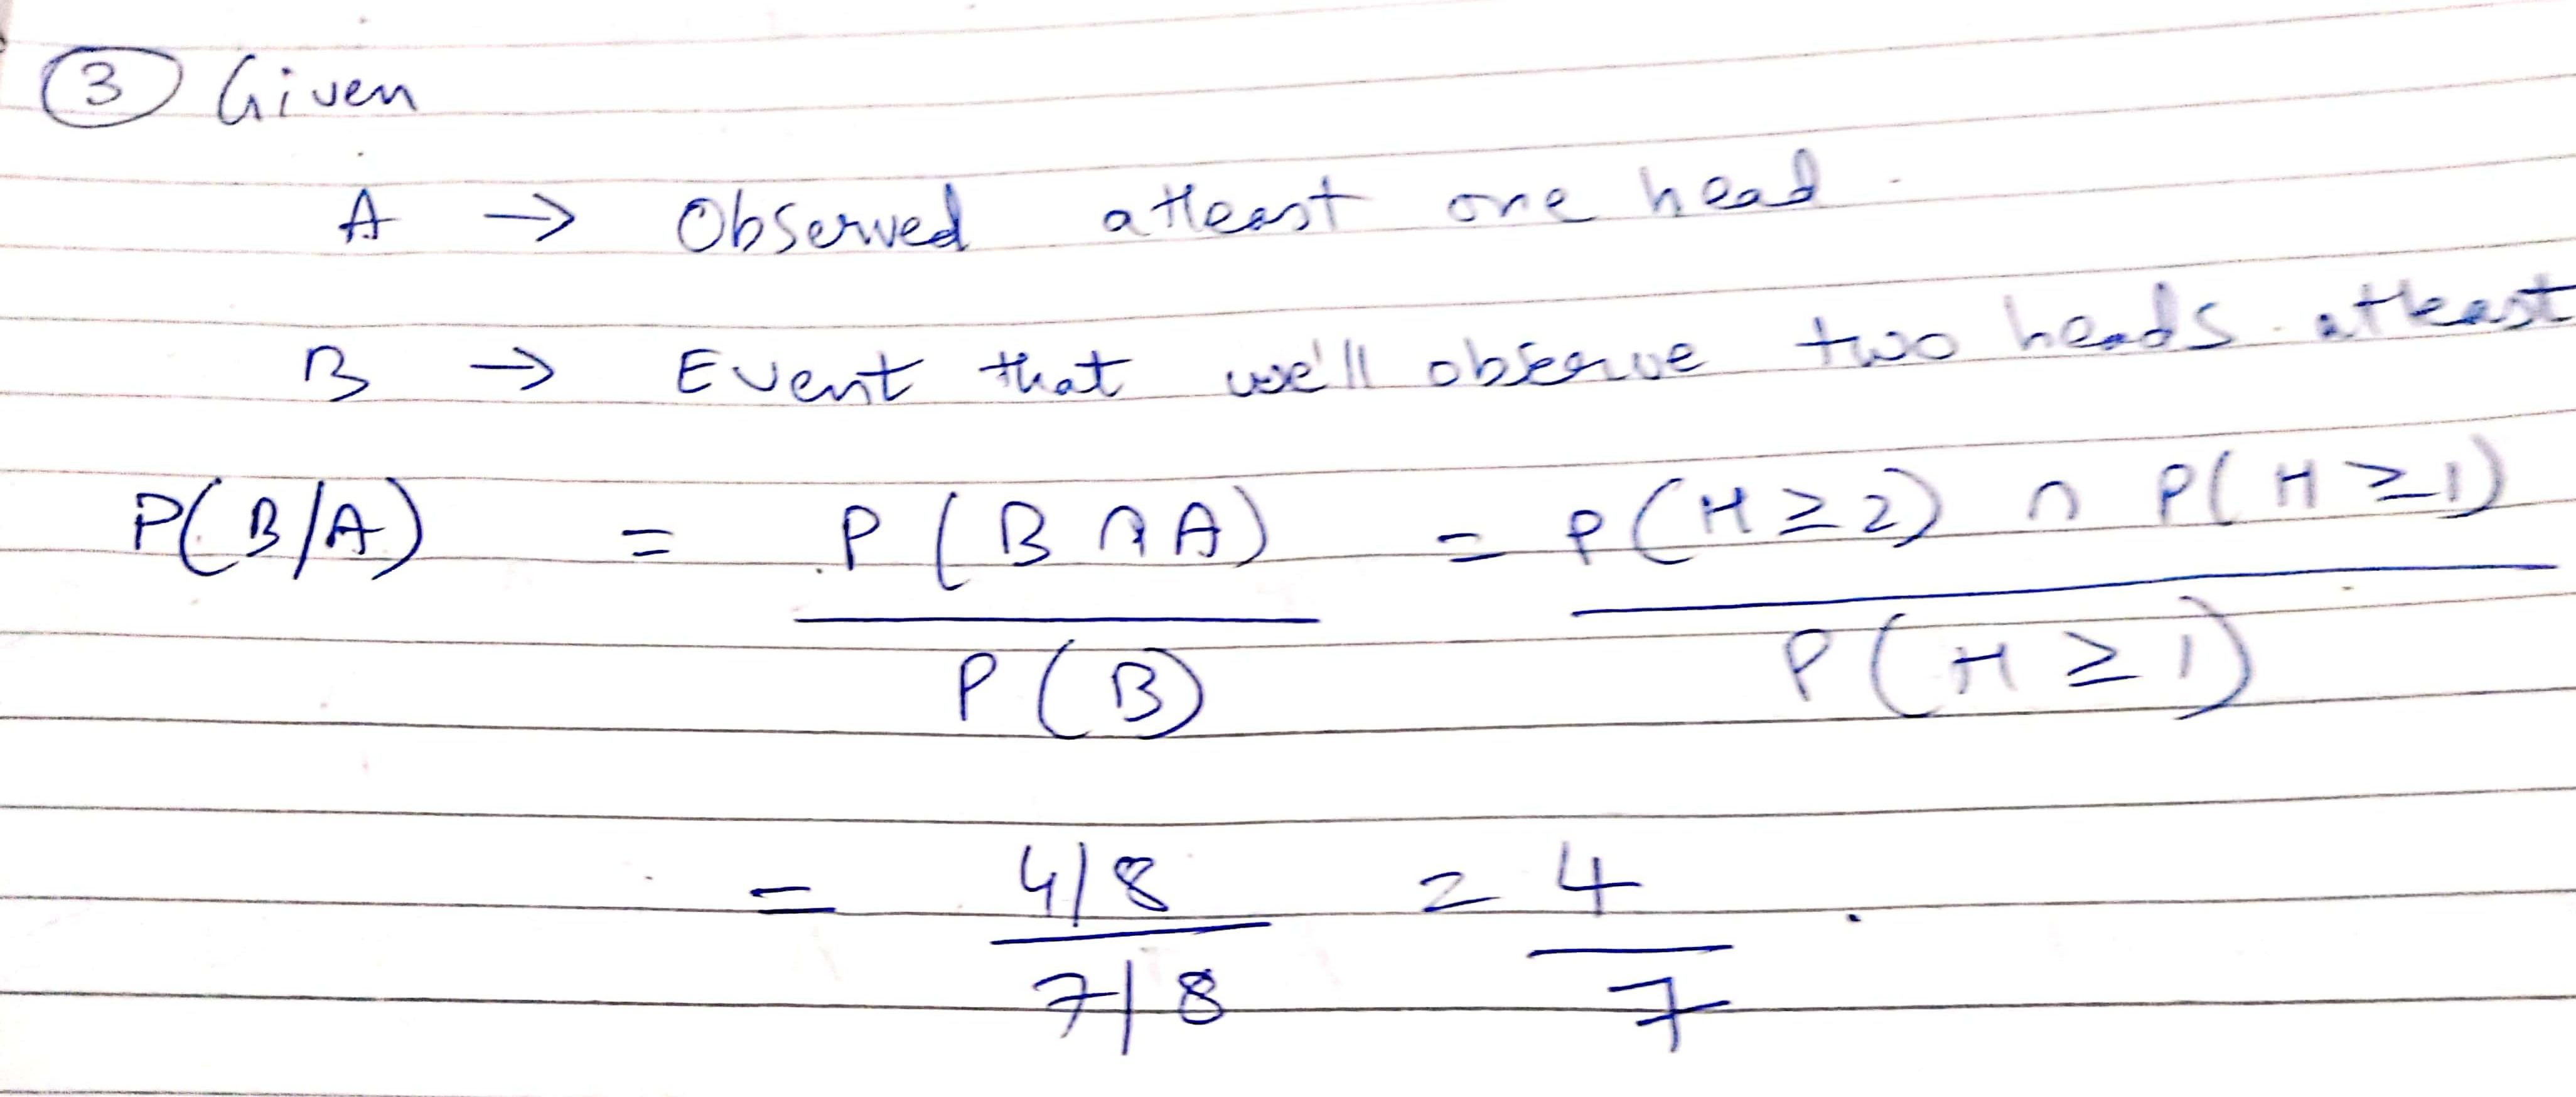 3 Given
A → Observed atleast one head.
B → Event that we'll observe two heads atleast
P(B/A) = P(B∩A) / P(B) = P(H≥2) ∩ P(H≥1) / P(H≥1)
= 4/8 / 7/8 = 4 / 7.